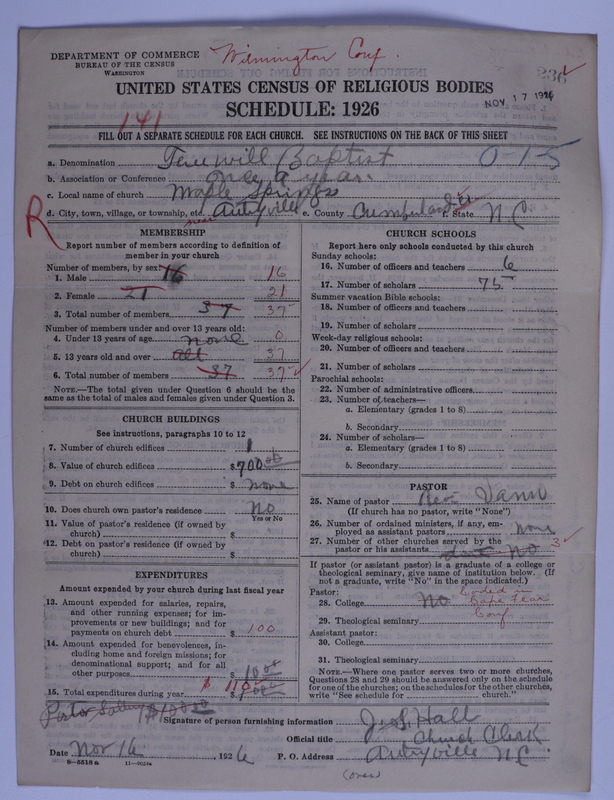 DEPARTMENT OF COMMERCE
BUREAU OF THE CENSUS
WASHINGTON
Wilmington Conf.
236
UNITED STATES CENSUS OF RELIGIOUS BODIES
NOV 17 1926
SCHEDULE: 1926
141
FILL OUT A SEPARATE SCHEDULE FOR EACH CHURCH. SEE INSTRUCTIONS ON THE BACK OF THIS SHEET
a. Denomination Free will Baptist 0-1-5
b. Association or Conference once a year
c. Local name of church Maple Springs
d. City, town, village, or township, etc. near Autryville e. County Cumberland f. State N.C.
R
MEMBERSHIP
Report number of members according to definition of member in your church
Number of members, by sex:
1. Male 16 16
2. Female 21 21
3. Total number of members 37 37
Number of members under and over 13 years old:
4. Under 13 years of age none 0
5. 13 years old and over all 37
6. Total number of members 37 37
NOTE.—The total given under Question 6 should be the same as the total of males and females given under Question 3.
CHURCH BUILDINGS
See instructions, paragraphs 10 to 12
7. Number of church edifices 1
8. Value of church edifices $700.00
9. Debt on church edifices $ none
10. Does church own pastor's residence? No
Yes or No
11. Value of pastor's residence (if owned by church) $
12. Debt on pastor's residence (if owned by church) $
EXPENDITURES
Amount expended by your church during last fiscal year
13. Amount expended for salaries, repairs, and other running expenses; for improvements or new buildings; and for payments on church debt $ 100
14. Amount expended for benevolences, including home and foreign missions; for denominational support; and for all other purposes $ 10.00
15. Total expenditures during year $ 110
Pastor Salary $100.00
CHURCH SCHOOLS
Report here only schools conducted by this church
Sunday schools:
16. Number of officers and teachers 6
17. Number of scholars 75
Summer vacation Bible schools:
18. Number of officers and teachers
19. Number of scholars
Week-day religious schools:
20. Number of officers and teachers
21. Number of scholars
Parochial schools:
22. Number of administrative officers
23. Number of teachers—
a. Elementary (grades 1 to 8)
b. Secondary
24. Number of scholars—
a. Elementary (grades 1 to 8)
b. Secondary
PASTOR
25. Name of pastor Rev. Vann
(If church has no pastor, write "None")
26. Number of ordained ministers, if any, employed as assistant pastors none
27. Number of other churches served by the pastor or his assistants No 3
If pastor (or assistant pastor) is a graduate of a college or theological seminary, give name of institution below. (If not a graduate, write "No" in the space indicated.)
Pastor:
28. College No
in Cape Fear Conf
29. Theological seminary
Assistant pastor:
30. College
31. Theological seminary
NOTE.—Where one pastor serves two or more churches, Questions 28 and 29 should be answered only on the schedule for one of the churches; on the schedules for the other churches, write "See schedule for church."
Signature of person furnishing information J. S. Hall
Official title Church Clerk
Date Nov 16, 1926 P. O. Address Autryville N.C.
8-5518 a 11-9051a
(over)